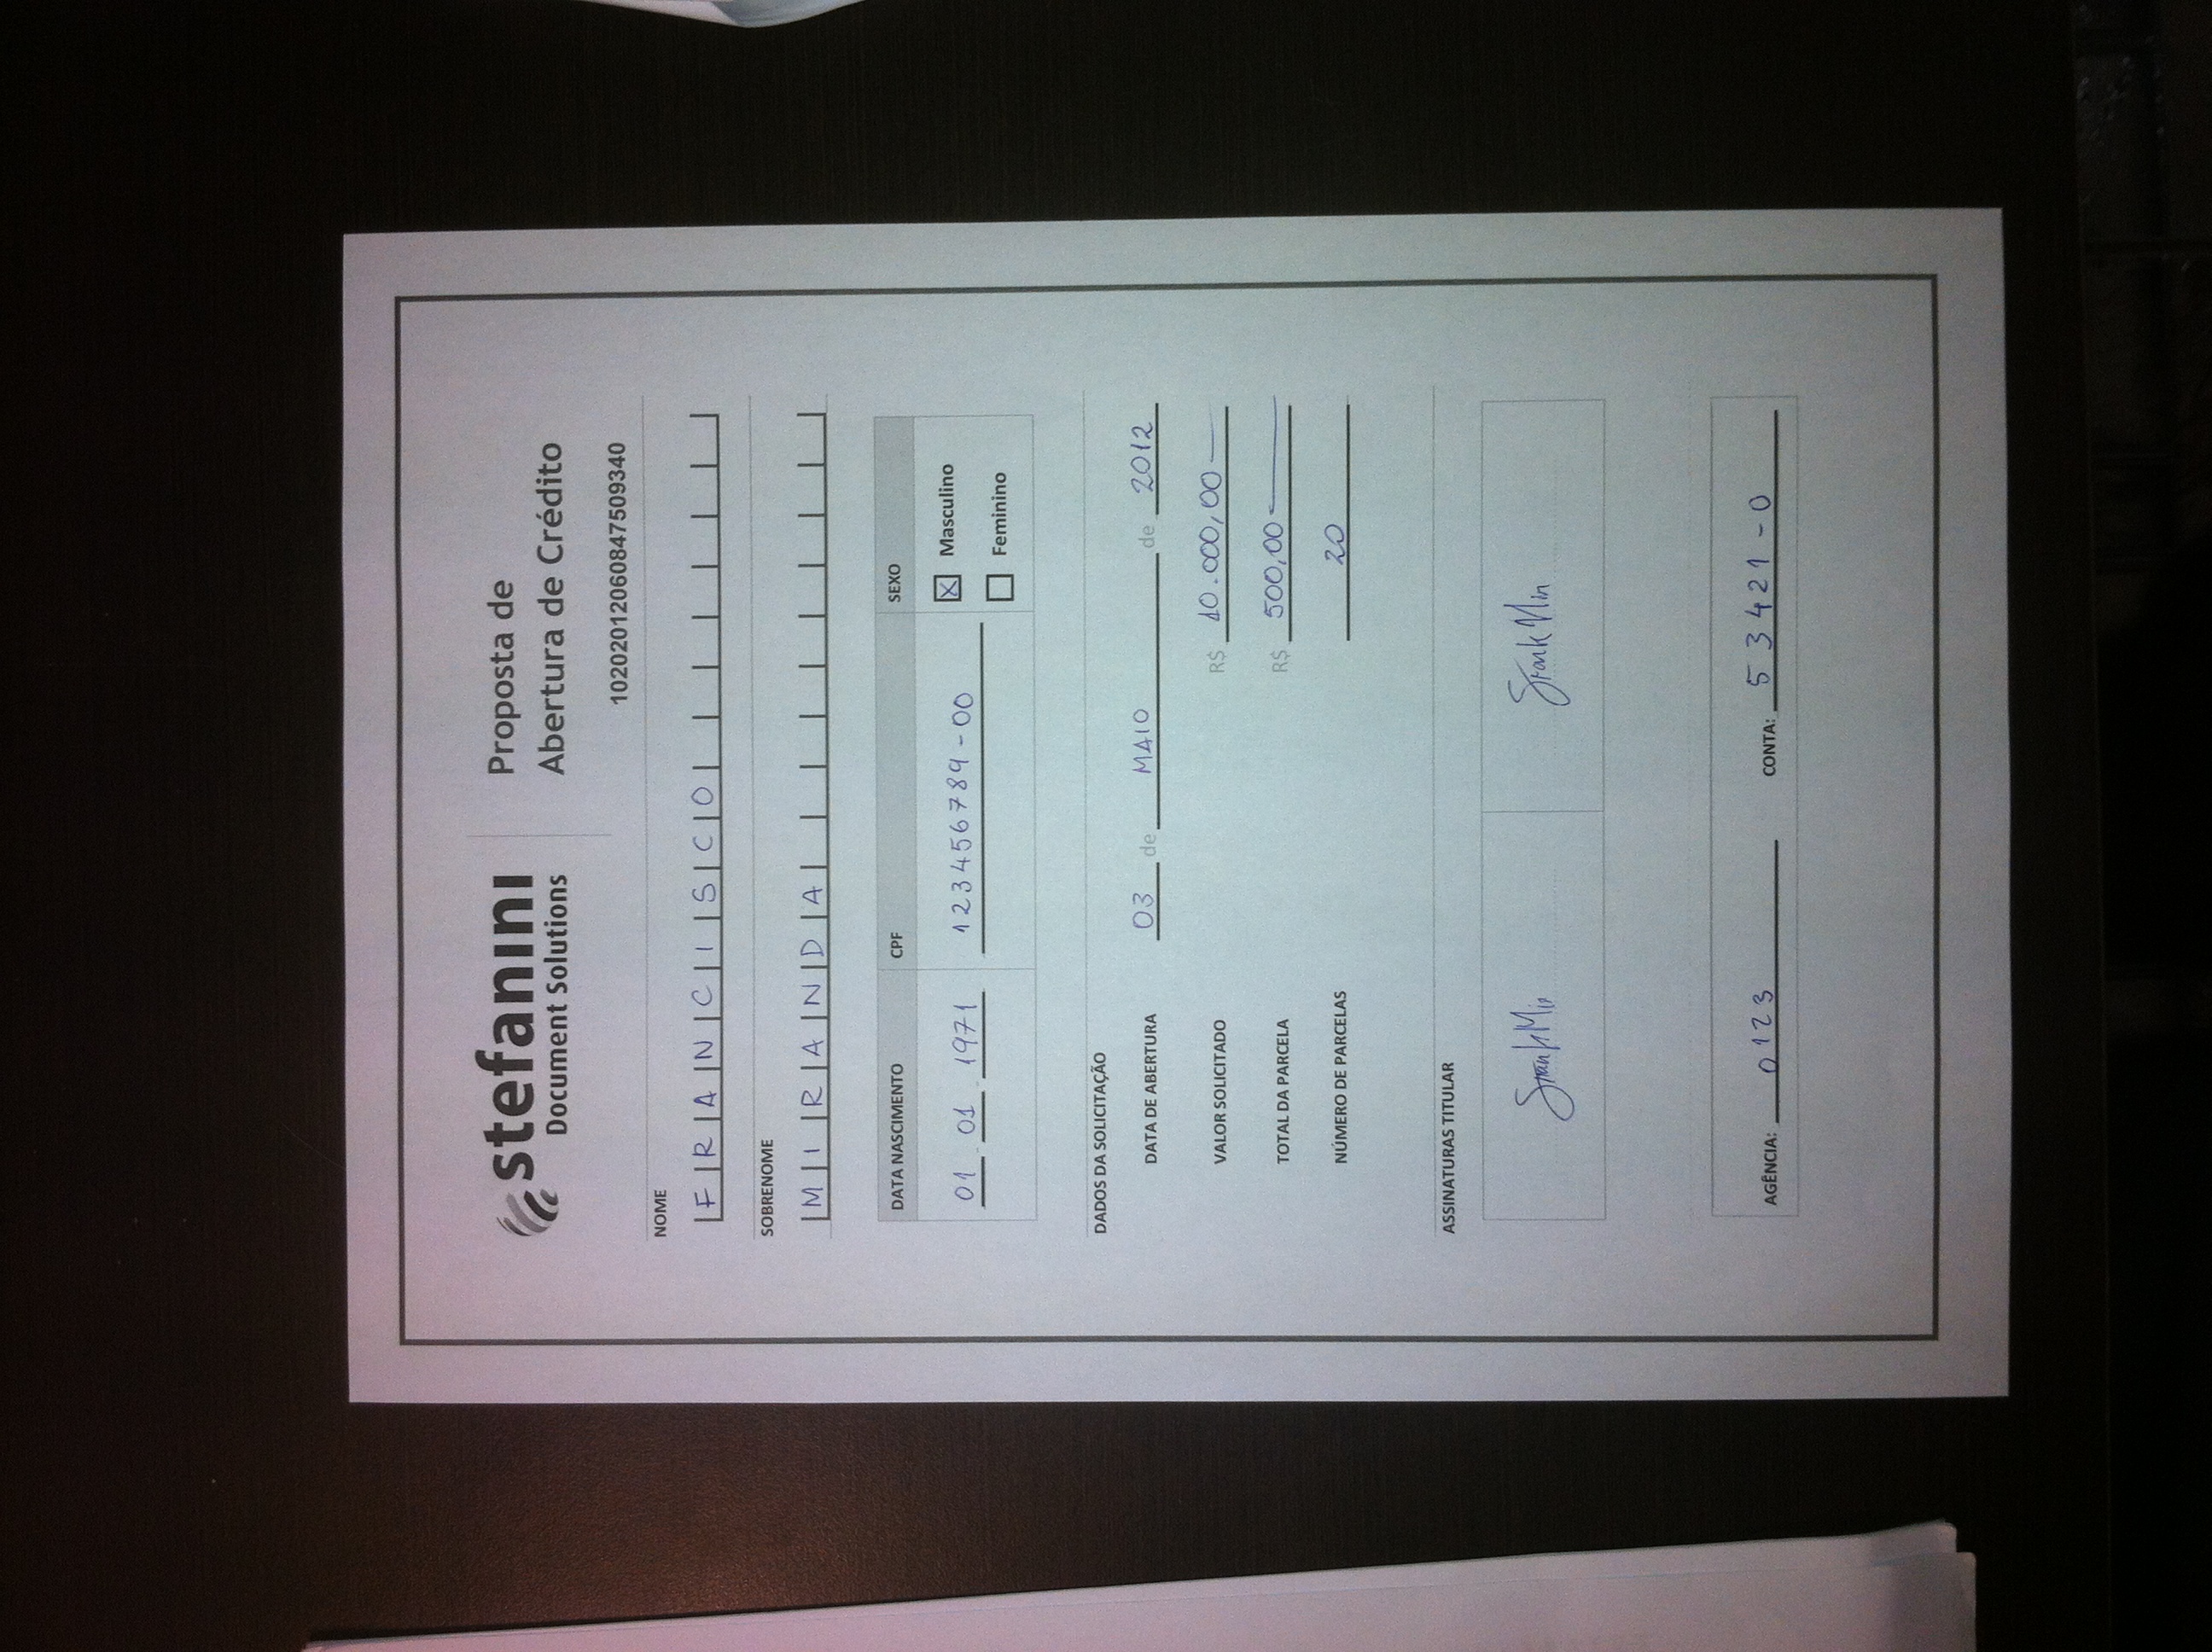 stefanini
Document Solutions
Proposta de
Abertura de Crédito
10202012060847509340
NOME
FRANCISCO
SOBRENOME
MIRANDA
DATA NASCIMENTO CPF SEXO
01 01 1971 123456789-00
Masculino
Feminino
DADOS DA SOLICITAÇÃO
DATA DE ABERTURA 03 de MAIO de 2012
VALOR SOLICITADO R$ 10.000,00
TOTAL DA PARCELA R$ 500,00
NÚMERO DE PARCELAS 20
ASSINATURAS TITULAR
AGÊNCIA: 0123 CONTA: 53421-0